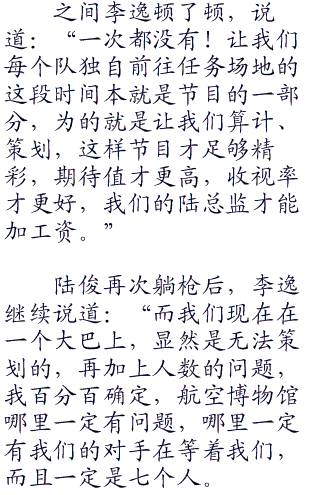 之间李逸顿了顿，说
道：“一次都没有！让我们
每个队独自前往任务场地的
这段时间本就是节目的一部
分，为的就是让我们算计、
策划，这样节目才足够精
彩，期待值才更高，收视率
才更好，我们的陆总监才能
加工资。”
陆俊再次躺枪后，李逸
继续说道：“而我们现在在
一个大巴上，显然是无法策
划的，再加上人数的问题，
我百分百确定，航空博物馆
哪里一定有问题，哪里一定
有我们的对手在等着我们，
而且一定是七个人。